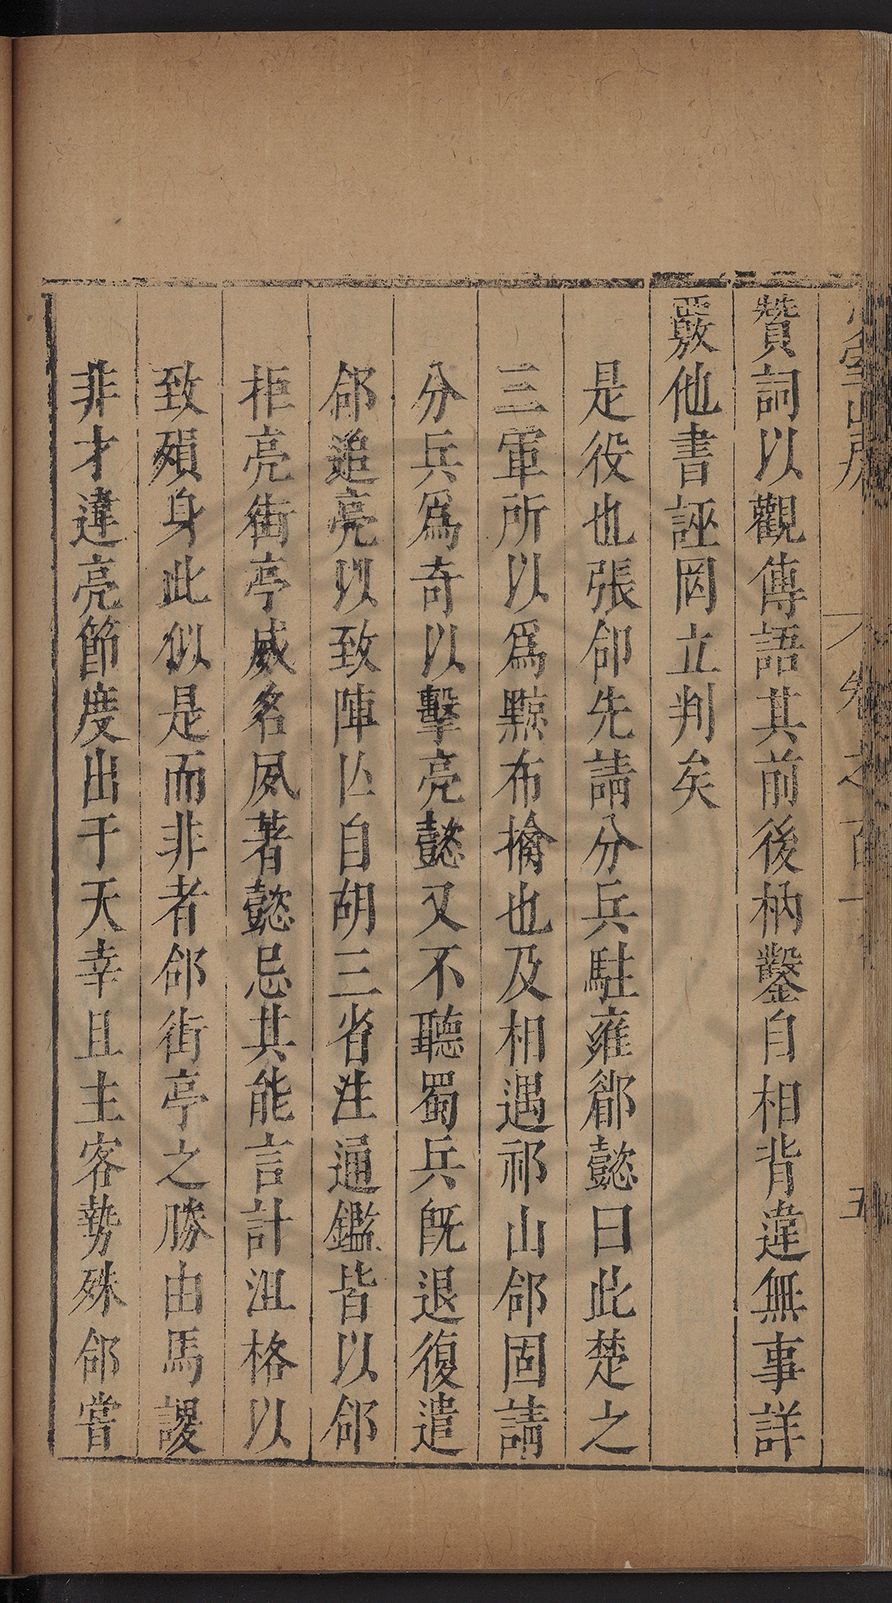 贊詞以觀傳語其前後枘鑿自相背違無事詳
覈他書誣罔立判矣
是役也張郃先請分兵駐雍郿懿曰此楚之
三軍所以爲黥布擒也及相遇祁山郃固請
分兵爲奇以擊亮懿又不聽蜀兵旣退復遣
郃追亮以致陣亾自胡三省注通鑑皆以郃
拒亮街亭威名夙著懿忌其能言計沮格以
致殞身此似是而非者郃街亭之勝由馬謖
非才違亮節度出于天幸且主客勢殊郃嘗